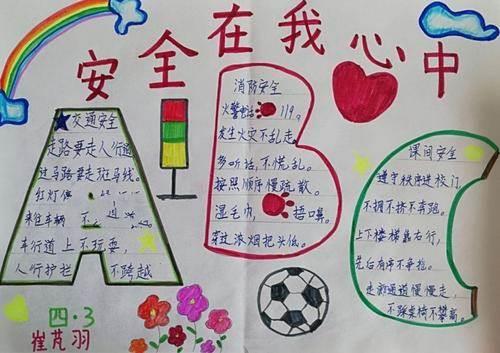 安全在我心中
交通安全
走路要走人行道
过马路要走斑马线
红灯停
来往车辆 不
车行道上不玩耍,
人行护栏 不跨越
消防安全
火警电话 119。
发生火灾不乱走,
多听话,不慌乱。
按照顺序慢疏散。
湿毛巾, 捂口鼻。
穿过浓烟把头低。
课间安全
遵守秩序进校门,
不拥不挤不奔跑。
上下楼梯靠右行,
先后有序不争抢。
走廊通道慢慢走,
不踩桌椅不攀高。
四·3
崔芃羽